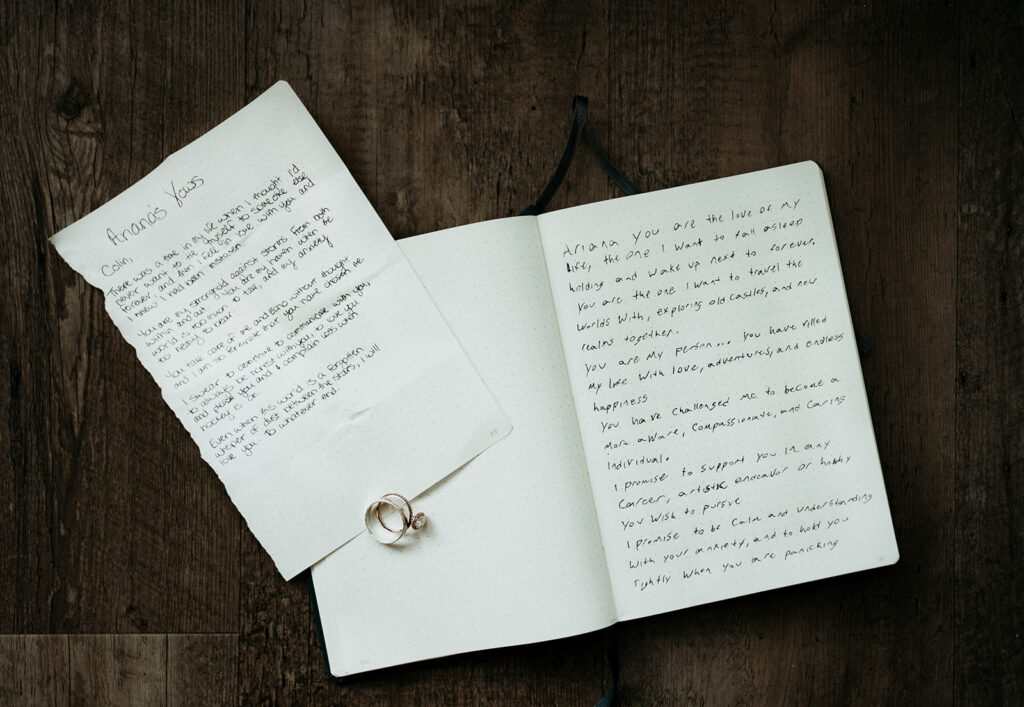 Ariana's Vows
Colin,
There was a time in my life when I thought I'd
never want to tie myself to someone else
forever and then I fell in love with you and
knew I had been mistaken.
You are my stronghold against storms from both
within and out. You are my haven when the
world is too much to take, and my anxiety
too heavy to bear.
You take care of me and Echo without thought
and I am so fortunate that you have chosen me
I swear to continue to communicate with you,
to always be honest with you, to love you
and please you and to complain less when
hockey is on
Even when this world is a forgotten
whisper of dust between the stars, I will
love you. To whatever end
23
Ariana you are the love of My
life, the one I want to fall asleep
holding and wake up next to forever.
You are the one I want to travel the
Worlds With, exploring old castles, and new
realms together.
You are My person... You have filled
My life With love, adventures, and endless
happiness
You have challenged me to become a
More aware, Compassionate, and Caring
Individual.
I promise to support you in any
Career, artistic endeavor or hobby
You Wish to pursue
I promise to be Calm and understanding
With your anxiety, and to hold you
Tightly When you are panicking
30